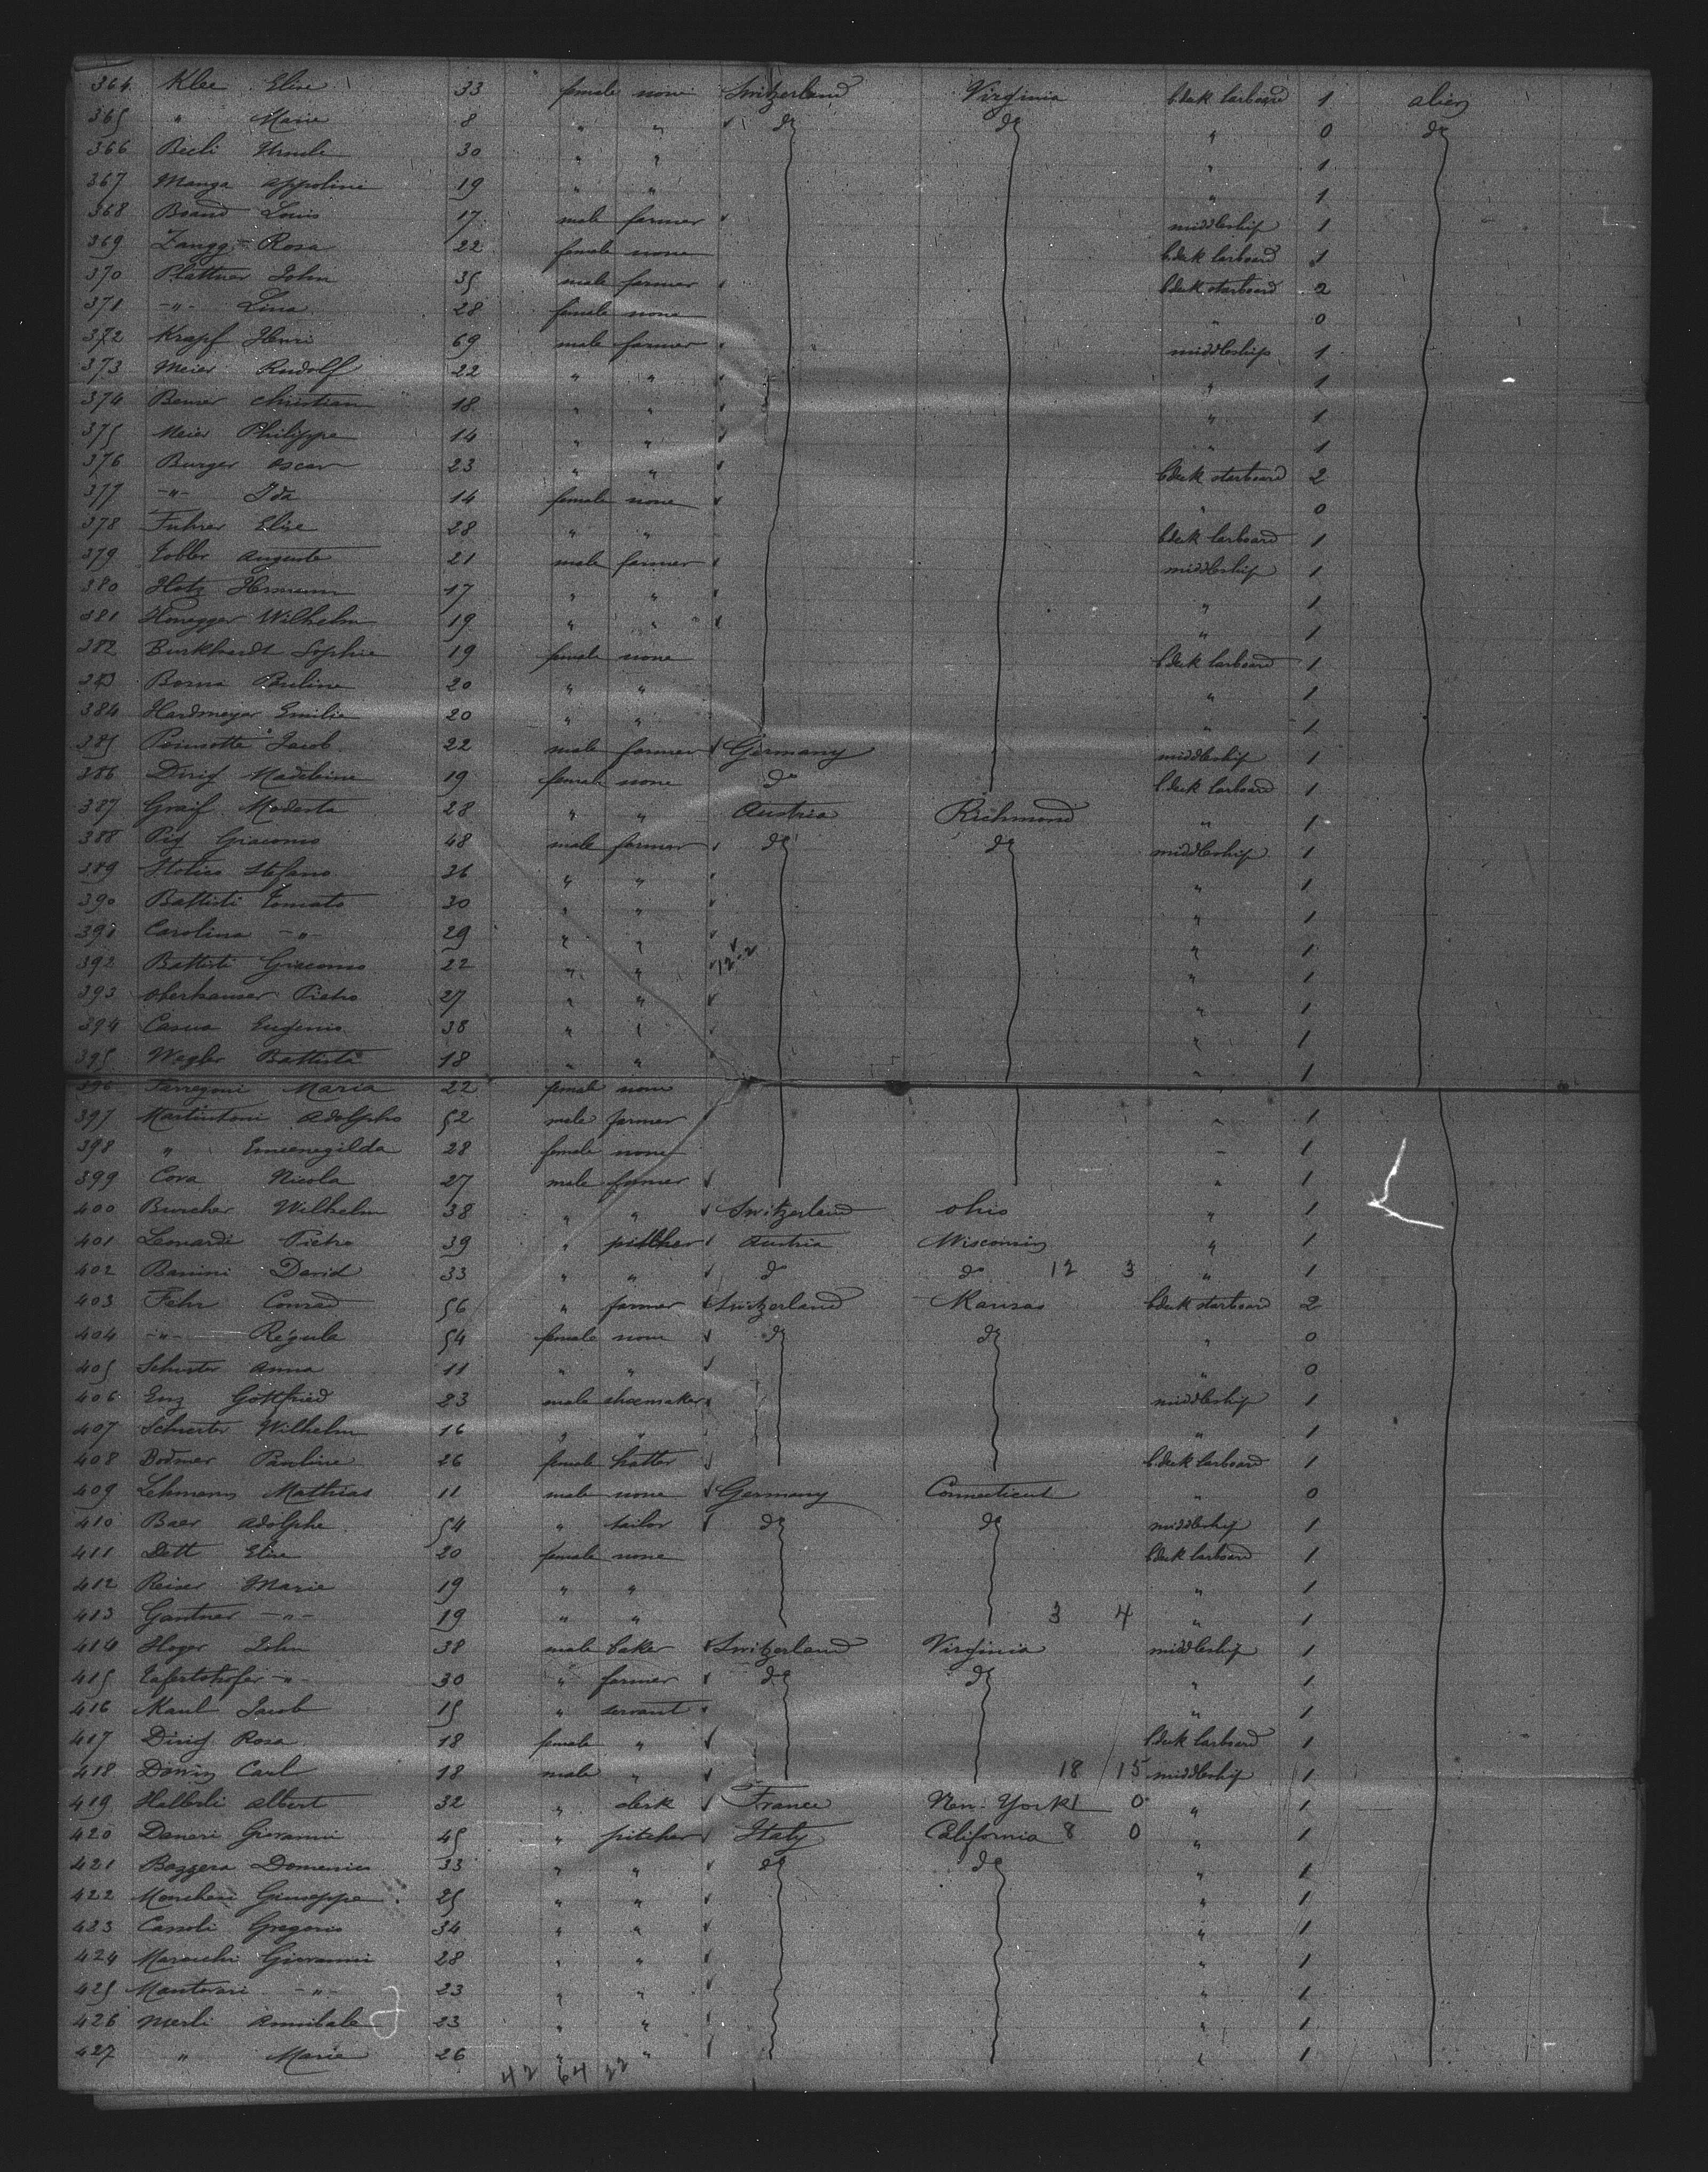 364 Klee Elise 33 female none Switzerland Virginia b.deck larboard 1 alien
365 " Marie 8 " " do do " 0 do
366 Beeli Ursule 30 " " " 1
367 Manga Appoline 19 " " " 1
368 Brand Louis 17 male farmer middleship 1
369 Zangg Rosa 22 female none b.deck larboard 1
370 Plattner John 35 male farmer b.deck starboard 2
371 -"- Lina 28 female none " 0
372 Krapf Henri 69 male farmer middleship 1
373 Meier Rudolf 22 " " " 1
374 Bemer Christian 18 " " " 1
375 Meier Philippe 14 " " " 1
376 Burger Oscar 23 " " b.deck starboard 2
377 -"- Ida 14 female none " 0
378 Fuhrer Elise 28 " " b.deck larboard 1
379 Tobler Auguste 21 male farmer middleship 1
380 Hotz Hermann 17 " " " 1
381 Honegger Wilhelm 19 " " " 1
382 Burkhardt Sophie 19 female none b.deck larboard 1
383 Pauline 20 " " " 1
384 Hardmeyer Emilie 20 " " " 1
385 Jacob 22 male farmer Germany middleship 1
386 Dirig Madeleine 19 female none do b.deck larboard 1
387 Greif Modesta 28 " " Austria Richmond " 1
388 Giacomo 48 male farmer do do middleship 1
389 Stefano 36 " " " 1
390 Battisti 30 " " " 1
391 Carolina -"- 29 " " " 1
392 Battisti Giacomo 22 " " 12-2 " 1
393 Oberhauser Pietro 27 " " " 1
394 Eugenio 38 " " " 1
395 Wegler Battista 18 " " " 1
396 Maria 22 female none
397 Martintoni Adolpho 52 male farmer " 1
398 " 28 female none " 1
399 Cova Nicola 27 male farmer " 1
400 Burcher Wilhelm 38 " " Switzerland Ohio " 1
401 Leonardi Pietro 39 " pitcher Austria Wisconsin " 1
402 Banini David 33 " " do do 12 3 " 1
403 Fehr Conrad 56 " farmer Switzerland Kansas b.deck starboard 2
404 -"- Regula 54 female none do do " 0
405 Schuster Anna 11 " " " 0
406 Enz Gottfried 23 male shoemaker middleship 1
407 Schuster Wilhelm 16 " " " 1
408 Bodmer Pauline 26 female hatter b.deck larboard 1
409 Lehmann Mathias 11 male none Germany Connecticut " 0
410 Baer Adolphe 54 " tailor do do middleship 1
411 Dett Elise 20 female none b.deck larboard 1
412 Reiser Marie 19 " " " 1
413 Gantner -"- 19 " " 3 4 " 1
414 Hoger John 38 male baker Switzerland Virginia middleship 1
415 Tafertshofer -"- 30 " farmer do do " 1
416 Maul Jacob 15 " servant " 1
417 Dirig Rosa 18 female " b.deck larboard 1
418 Carl 18 male " 18 / 15 middleship 1
419 Halberli Albert 32 " clerk France New-York 1 0 " 1
420 Daneri Giovanni 45 " pitcher Italy California 8 0 " 1
421 Baggera Domenico 33 " " do do " 1
422 Giuseppe 25 " " " 1
423 Cassoli Gregorio 34 " " " 1
424 Giovanni 28 " " " 1
425 Mantovani -"- 23 " " " 1
426 Merli Annibale 23 " " " 1
427 " Marie 26 " " " 1
42 64 22